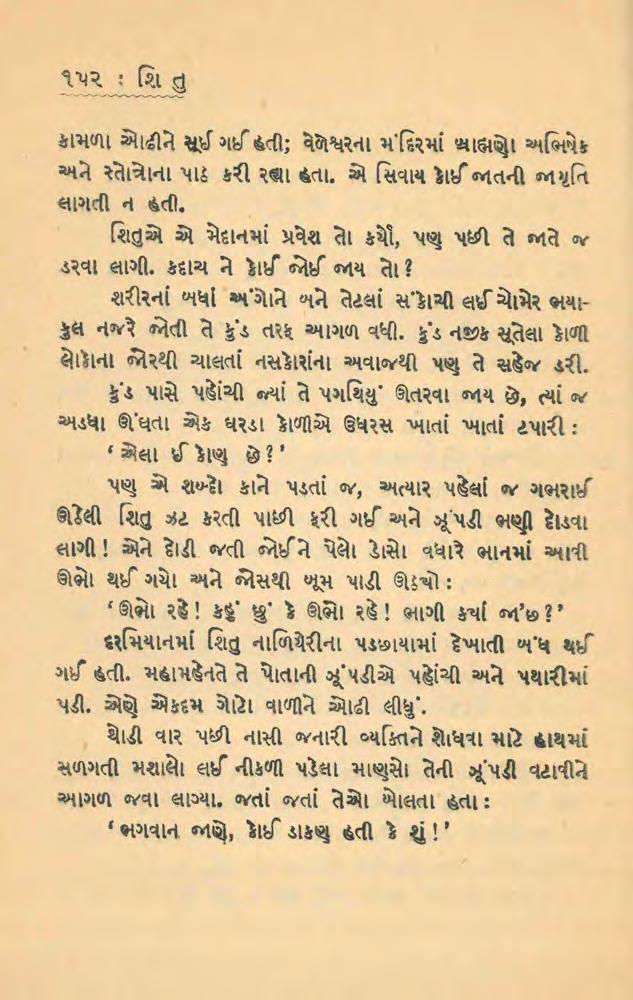 ૧૫૨ : શિ તુ
કામળા ઓઢીને સૂઈ ગઈ હતી; વેળેશ્વરના મંદિરમાં બ્રાહ્મણો અભિષેક
અને સ્તોત્રોના પાઠ કરી રહ્યા હતા. એ સિવાય કોઈ જાતની જાગૃતિ
લાગતી ન હતી.
શિતુએ એ મેદાનમાં પ્રવેશ તો કર્યો, પણ પછી તે જાતે જ
ડરવા લાગી. કદાચ ને કોઈ જોઈ જાય તો?
શરીરનાં બધાં અંગોને બને તેટલાં સંકોચી લઈ ચોમેર ભયા-
કુલ નજરે જોતી તે કુંડ તરફ આગળ વધી. કુંડ નજીક સૂતેલા કોળી
લોકોના જોરથી ચાલતાં નસકોરાંના અવાજથી પણ તે સહેજ ડરી.
કુંડ પાસે પહોંચી જ્યાં તે પગથિયું ઊતરવા જાય છે, ત્યાં જ
અડધા ઊંઘતા એક ઘરડા કોળીએ ઉધરસ ખાતાં ખાતાં ટપારી :
‘એલા ઈ કોણ છે?’
પણ એ શબ્દો કાને પડતાં જ, અત્યાર પહેલાં જ ગભરાઈ
ઊઠેલી શિતુ ઝટ કરતી પાછી ફરી ગઈ અને ઝૂંપડી ભણી દોડવા
લાગી! એને દોડી જતી જોઈને પેલો ડોસો વધારે ભાનમાં આવી
ઊભો થઈ ગયો અને જોસથી બૂમ પાડી ઊઠ્યો :
‘ઊભો રહે! કહું છું કે ઊભો રહે! ભાગી ક્યાં જા’છ?’
દરમિયાનમાં શિતુ નાળિયેરીના પડછાયામાં દેખાતી બંધ થઈ
ગઈ હતી. મહામહેનતે તે પોતાની ઝૂંપડીએ પહોંચી અને પથારીમાં
પડી. એણે એકદમ ગોટો વાળીને ઓઢી લીધું.
થોડી વાર પછી નાસી જનારી વ્યક્તિને શોધવા માટે હાથમાં
સળગતી મશાલો લઈ નીકળી પડેલા માણસો તેની ઝૂંપડી વટાવીને
આગળ જવા લાગ્યા. જતાં જતાં તેઓ બોલતા હતા :
‘ભગવાન જાણે, કોઈ ડાકણ હતી કે શું!’